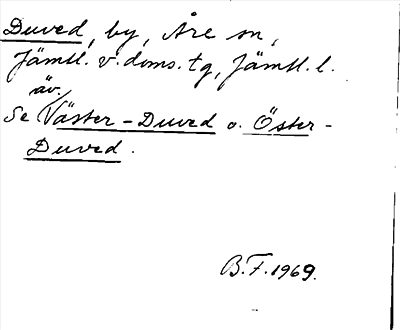 Duved, by, Åre sn,
Jämtl. v. doms. tg, Jämtl. l.
äv.
Se Väster-Duved o. Öster-
Duved.
B.F. 1969.